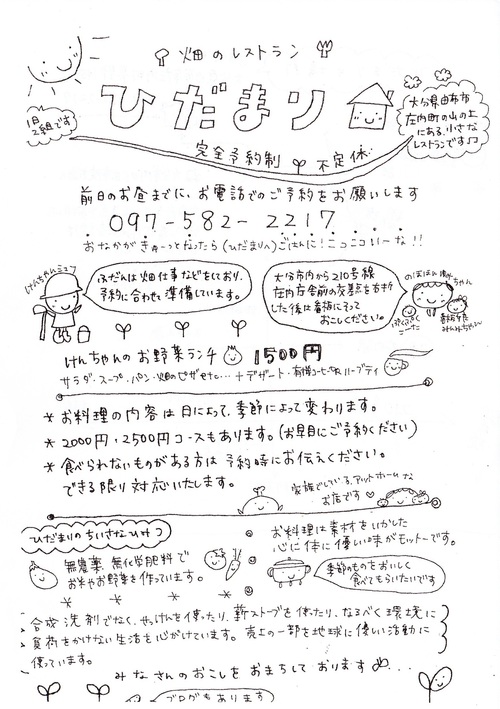 畑のレストラン
ひだまり
1日
2組です
大分県由布市
庄内町の山の上
にある、小さな
レストランです♫
完全予約制 不定休
前日のお昼までに、お電話でのご予約をお願いします
097-582-2217
おなかがきゅーっとなったら(ひだまりへ)ごはんに!ニっコニコいーな!!
けんちゃんマン
ふだんは畑仕事などをしており、
予約に合わせて準備しています。
大分市内から210号線
庄内庁舎前の交差点を右折
した後は看板にそって
おこしください。
けんちゃんのお野菜ランチ 1500円
サラダ・スープ・パン・畑のピザetc...+デザート・有機コーヒーorハーブティ
*お料理の内容は日によって、季節によって変わります。
*2000円・2500円コースもあります。(お早目にご予約ください)
*食べられないものがある方は予約時にお伝えください。
できる限り対応いたします。
家族でしている、アットホームな
お店です♡
ひだまりのちいさなひみつ
無農薬 無化学肥料で
お米やお野菜を作っています。
お料理は素材をいかした
心に体に優しい味がモットーです。
季節のものをおいしく
食べてもらいたいです
合成洗剤でなく、せっけんを使ったり、薪ストーブを使ったり、なるべく環境に
負荷をかけない生活を心がけています。売上の一部を地球に優しい活動に
使っています。
みなさんのおこしをおまちしております...
ブログもあります